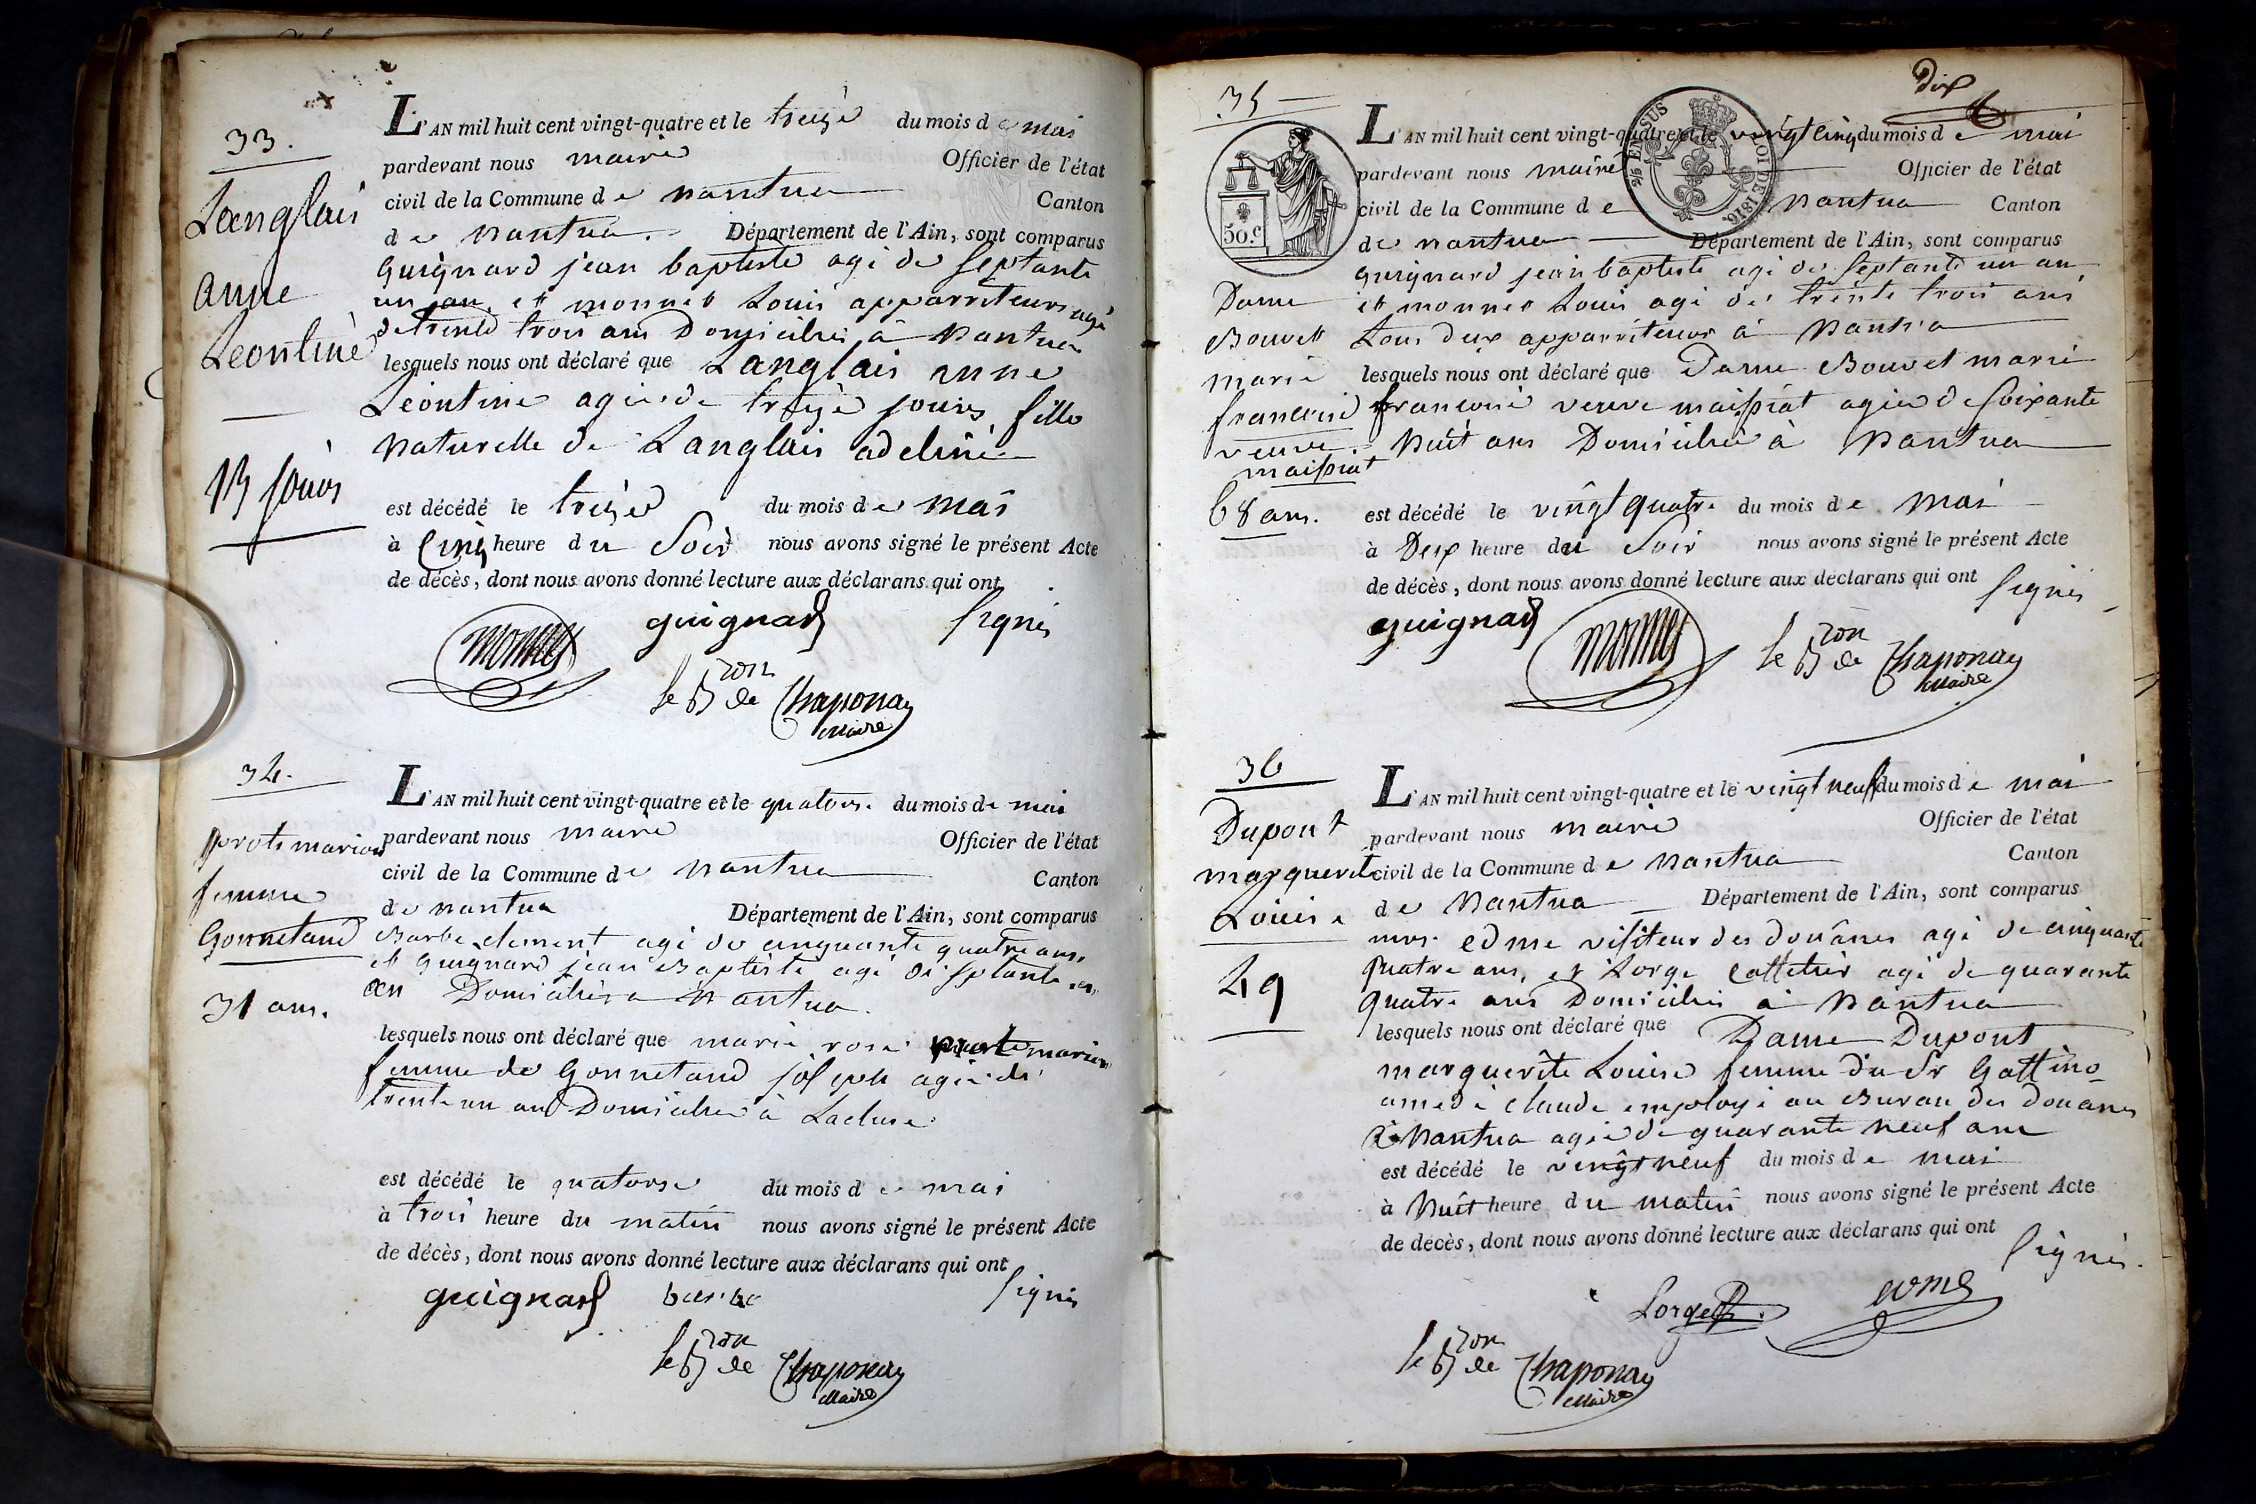 33.
Langlais
Anne
Leontine
13 jours
L'AN mil huit cent vingt-quatre et le treize du mois de mai
pardevant nous maire Officier de l'état
civil de la Commune de nantua Canton
de nantua. Département de l'Ain, sont comparus
guignard jean baptiste agé de septante
un an et monnet Louis apparriteurs agé
de trente trois ans Domiciliés à nantua
lesquels nous ont déclaré que Langlais anne
Léontine agée de treize jours fille
naturelle de Langlais adeline
est décédé le treize du mois de mai
à Cinq heure du Soir nous avons signé le présent Acte
de décès, dont nous avons donné lecture aux déclarans qui ont
signés
monnet guignard
le Bron de Chaponay
Maire
34.
femme
Gonnetand
31 ans.
L'AN mil huit cent vingt-quatre et le quatorze du mois de mai
pardevant nous maire Officier de l'état
civil de la Commune de nantua Canton
de nantua Département de l'Ain, sont comparus
Barbe clement agé de cinquante quatre ans
et guignard jean Baptiste agé de septante un
an Domiciliés a nantua.
lesquels nous ont déclaré que marie rose
femme de Gonnetand joseph agée de
trente un ans Domiciliée à Lacluse
est décédé le quatorze du mois de mai
à trois heure du matin nous avons signé le présent Acte
de décès, dont nous avons donné lecture aux déclarans qui ont
signés
guignard barbe
le Bron de Chaponay
Maire
Dix
35
50.c
2/5 EN SUS LOI DE 1816.
Dame
Bouvet
marie
francoise
veuve
maissiat
68 ans.
L'AN mil huit cent vingt-quatre et le vingt cinq du mois de mai
pardevant nous maire Officier de l'état
civil de la Commune de nantua Canton
de nantua Département de l'Ain, sont comparus
guignard jean baptiste agé de septante un an
et monnet Louis agé de trente trois ans
tous deux apparriteurs à nantua
lesquels nous ont déclaré que Dame Bouvet marie
francoise veuve maissiat agée de soixante
huit ans Domiciliée à nantua
est décédé le vingt quatre du mois de mai
à Deux heure du Soir nous avons signé le présent Acte
de décès, dont nous avons donné lecture aux déclarans qui ont
signés
guignard monnet le Bron de Chaponay
Maire
36
Dupont
marguerite
Louise
49
L'AN mil huit cent vingt-quatre et le vingt neuf du mois de mai
pardevant nous maire Officier de l'état
civil de la Commune de nantua Canton
de Nantua Département de l'Ain, sont comparus
edme visiteur des douânes agé de cinquante
quatre ans, et Lorge agé de quarante
quatre ans Domiciliés à nantua
lesquels nous ont déclaré que Dame Dupont
marguerite Louise femme du Sr Gattino
amedé claude employé au Bureau des douanes
à Nantua agée de quarante neuf ans
est décédé le vingt neuf du mois de mai
à huit heure du matin nous avons signé le présent Acte
de décès, dont nous avons donné lecture aux déclarans qui ont
signés.
Lorge
le Bron de Chaponay
Maire